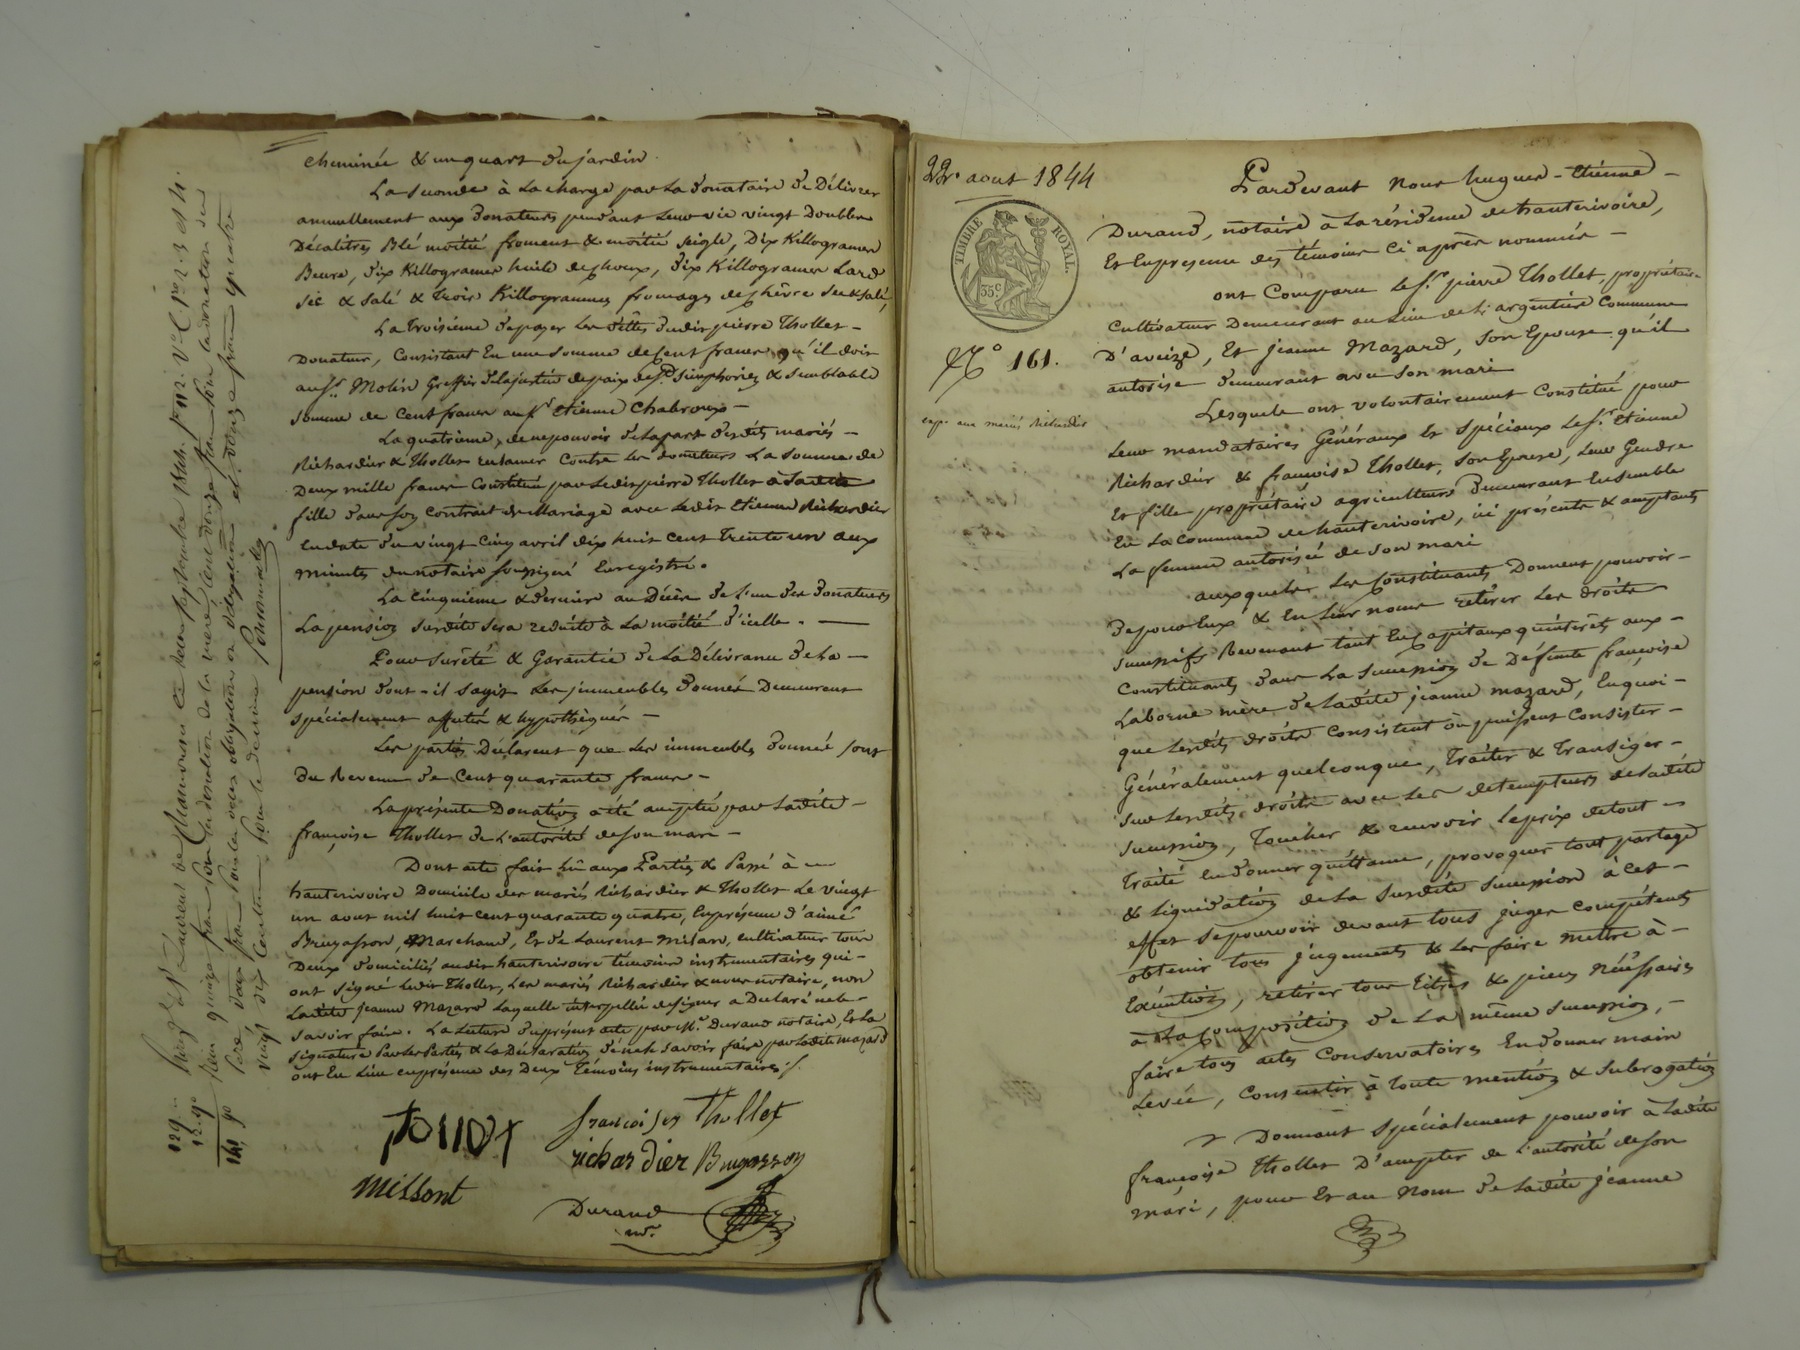 cheminée & un quart du jardin
La seconde à la charge par la donataire de Délivrer
annuellement aux donateurs pendant leur vie vingt doubles
Décalitres Blé moitié froment & moitié seigle, Dix Killogrames
Beure, dix Killogrames huile de choux, dix Killogrames Lard
sec & salé & trois Killogrammes fromages de chèvre sec & salé,
La troisième de payer les dettes dudit pierre Thollet -
Donateur, Consistant En une somme de Cent francs qu'il doit
au Sr. Molin Greffier de la justice de paix de St. Simphorien & semblable
somme de Cent francs au Sr Etienne Chabroux -
La quatrième, de ne pouvoir de la part desdits mariés -
Richardier & Thollet réclamer Contre les donateurs La somme de
Deux mille francs Constitué par Ledit pierre Thollet à sa dite
fille dans son Contrat de Mariage avec Ledit Etienne Richardier
en date du vingt Cinq avril dix huit Cent Trente un aux
minutes du notaire soussigné Enregistré.
La cinquième & dernière au Décès de l'un des Donateurs
La pension susdite sera réduite à La moitié d'icelle. -
Pour sureté & Garantie de La Délivrance de La -
pension dont-il sagit Les immeubles donnés Demeurent
spécialement affectés & hypothéqués -
Les parties Déclarent que Les immeubles donnés sont
du Revenu de Cent quarante francs -
La présente Donation a été acceptée par Ladite -
françoise Thollet de L'autorité de son mari -
Dont acte fait lu aux Parties & Passé à
hauterivoire Domicile des mariés Richardier & Thollet Le vingt
un aout mil huit cent quarante quatre, En présence d'aimé
Brugasson, Marchand, Et de Laurent Milan, cultivateur tous
Deux domiciliés audit hauterivoire témoins instrumentaires qui -
ont signé Ledit Thollet, Les mariés Richardier & nous notaire, non
Ladite jeanne Mazard Laquelle interpellée de signer a Déclaré ne le -
savoir faire. La lecture du présent acte par Me. Durand notaire, Et La
signature Par Les Parties & La Déclaration de ne le savoir faire par Ladite mazard
ont Eu Lieu en présence des Deux Témoins instrumentaires./.
tollot
françoise Thollet
richardier Brugasson
Durand
nre.
129 "
12.90
141 90
22. aout 1844
TIMBRE ROYAL.
35 c
No 161.
Pardevant nous hugues-Etienne -
Durand, notaire à La résidence de hauterivoire,
Et En présence des témoins Ci après nommés -
ont Comparu Le Sr. pierre Thollet, propriétaire
Cultivateur Demeurant au Lieu de L'argentière Commune
D'aveize, Et jeanne Mazard, Son Epouse qu'il
autorise demeurant avec Son mari
Lesquels ont volontairement Constitué pour
Leur mandataires Généraux Et Spéciaux Le Sr. Etienne
Richardier & françoise Thollet, Son Epouse, Leur Gendre
Et fille propriétaire agriculteurs Demeurant Ensemble
En La Commune de hauterivoire, ici présents & acceptants
La femme autorisée de Son mari
auxquels Les Constituants Donnent pouvoir -
de pour Eux & En Leur noms retirer Les droits
successifs Revenant tant En Capitaux qu'intérêts aux -
Constituants dans La Succession de Défunte françoise
Laborne mère de Ladite jeanne mazard, En quoi -
que Lesdits droits Consistent où puissent Consister -
Généralement quelconque, Traiter & Transiger -
sur Lesdits droits avec Les détempteurs de Ladite
succession, Toucher & recevoir Le prix de tout -
traité En donner quittance, provoquer tout partage
& Liquidation de La Susdite Succession à Cet -
effet Se pourvoir devant tous juges Compétents
obtenir tous jugements & Les faire mettre à -
Exécution, retirer tous titres & pièces nécéssaires
à La Composition de La même Succession, -
faire tous actes Conservatoires En donner main
Levée, Consentir à toute mention & Subrogation
Donnant Spécialement pouvoir à Ladite
françoise Thollet D'accepter de L'autorité de Son
mari, pour Et au Nom de Ladite jeanne